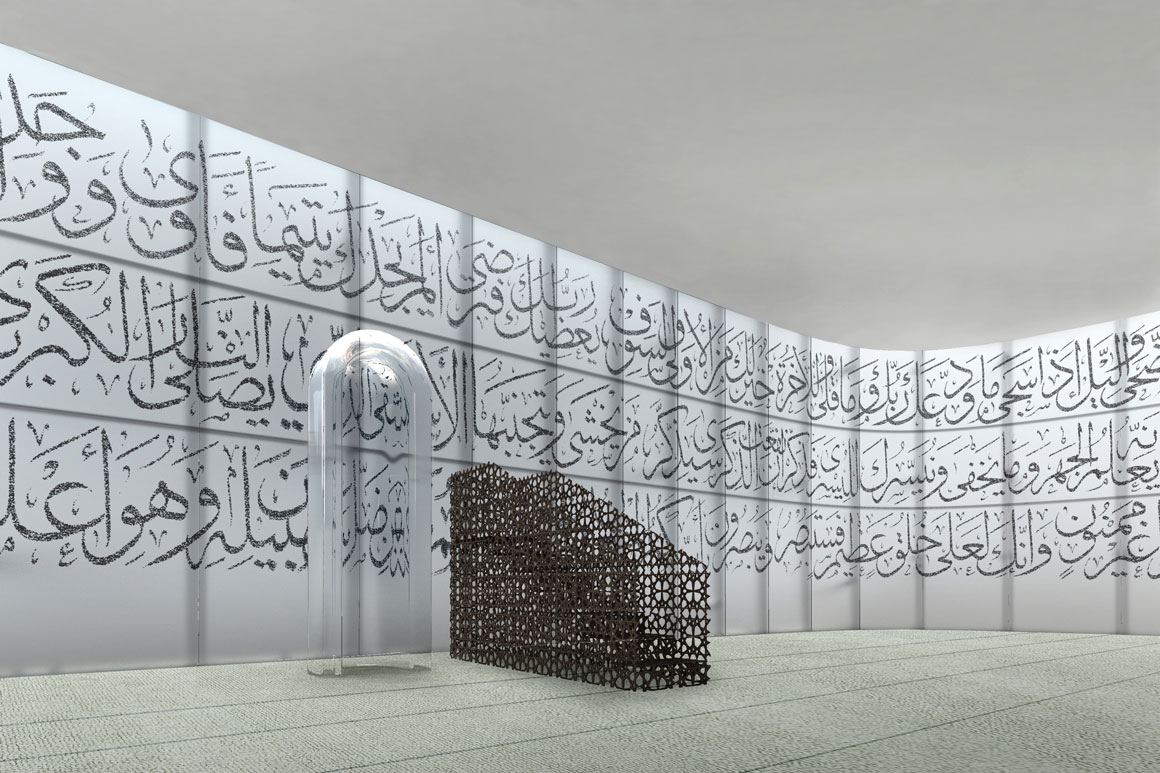 والليل إذا سجى ما ودعك ربك وما قلى وللآخرة خير لك من الأولى ولسوف يعطيك ربك فترضى ألم يجدك يتيما فآوى
إنه يعلم الجهر وما يخفى ونيسرك لليسرى فذكر إن نفعت الذكرى سيذكر من يخشى ويتجنبها الأشقى الذي يصلى النار الكبرى
غير ممنون وإنك لعلى خلق عظيم فستبصر ويبصرون ضل عن سبيله وهو